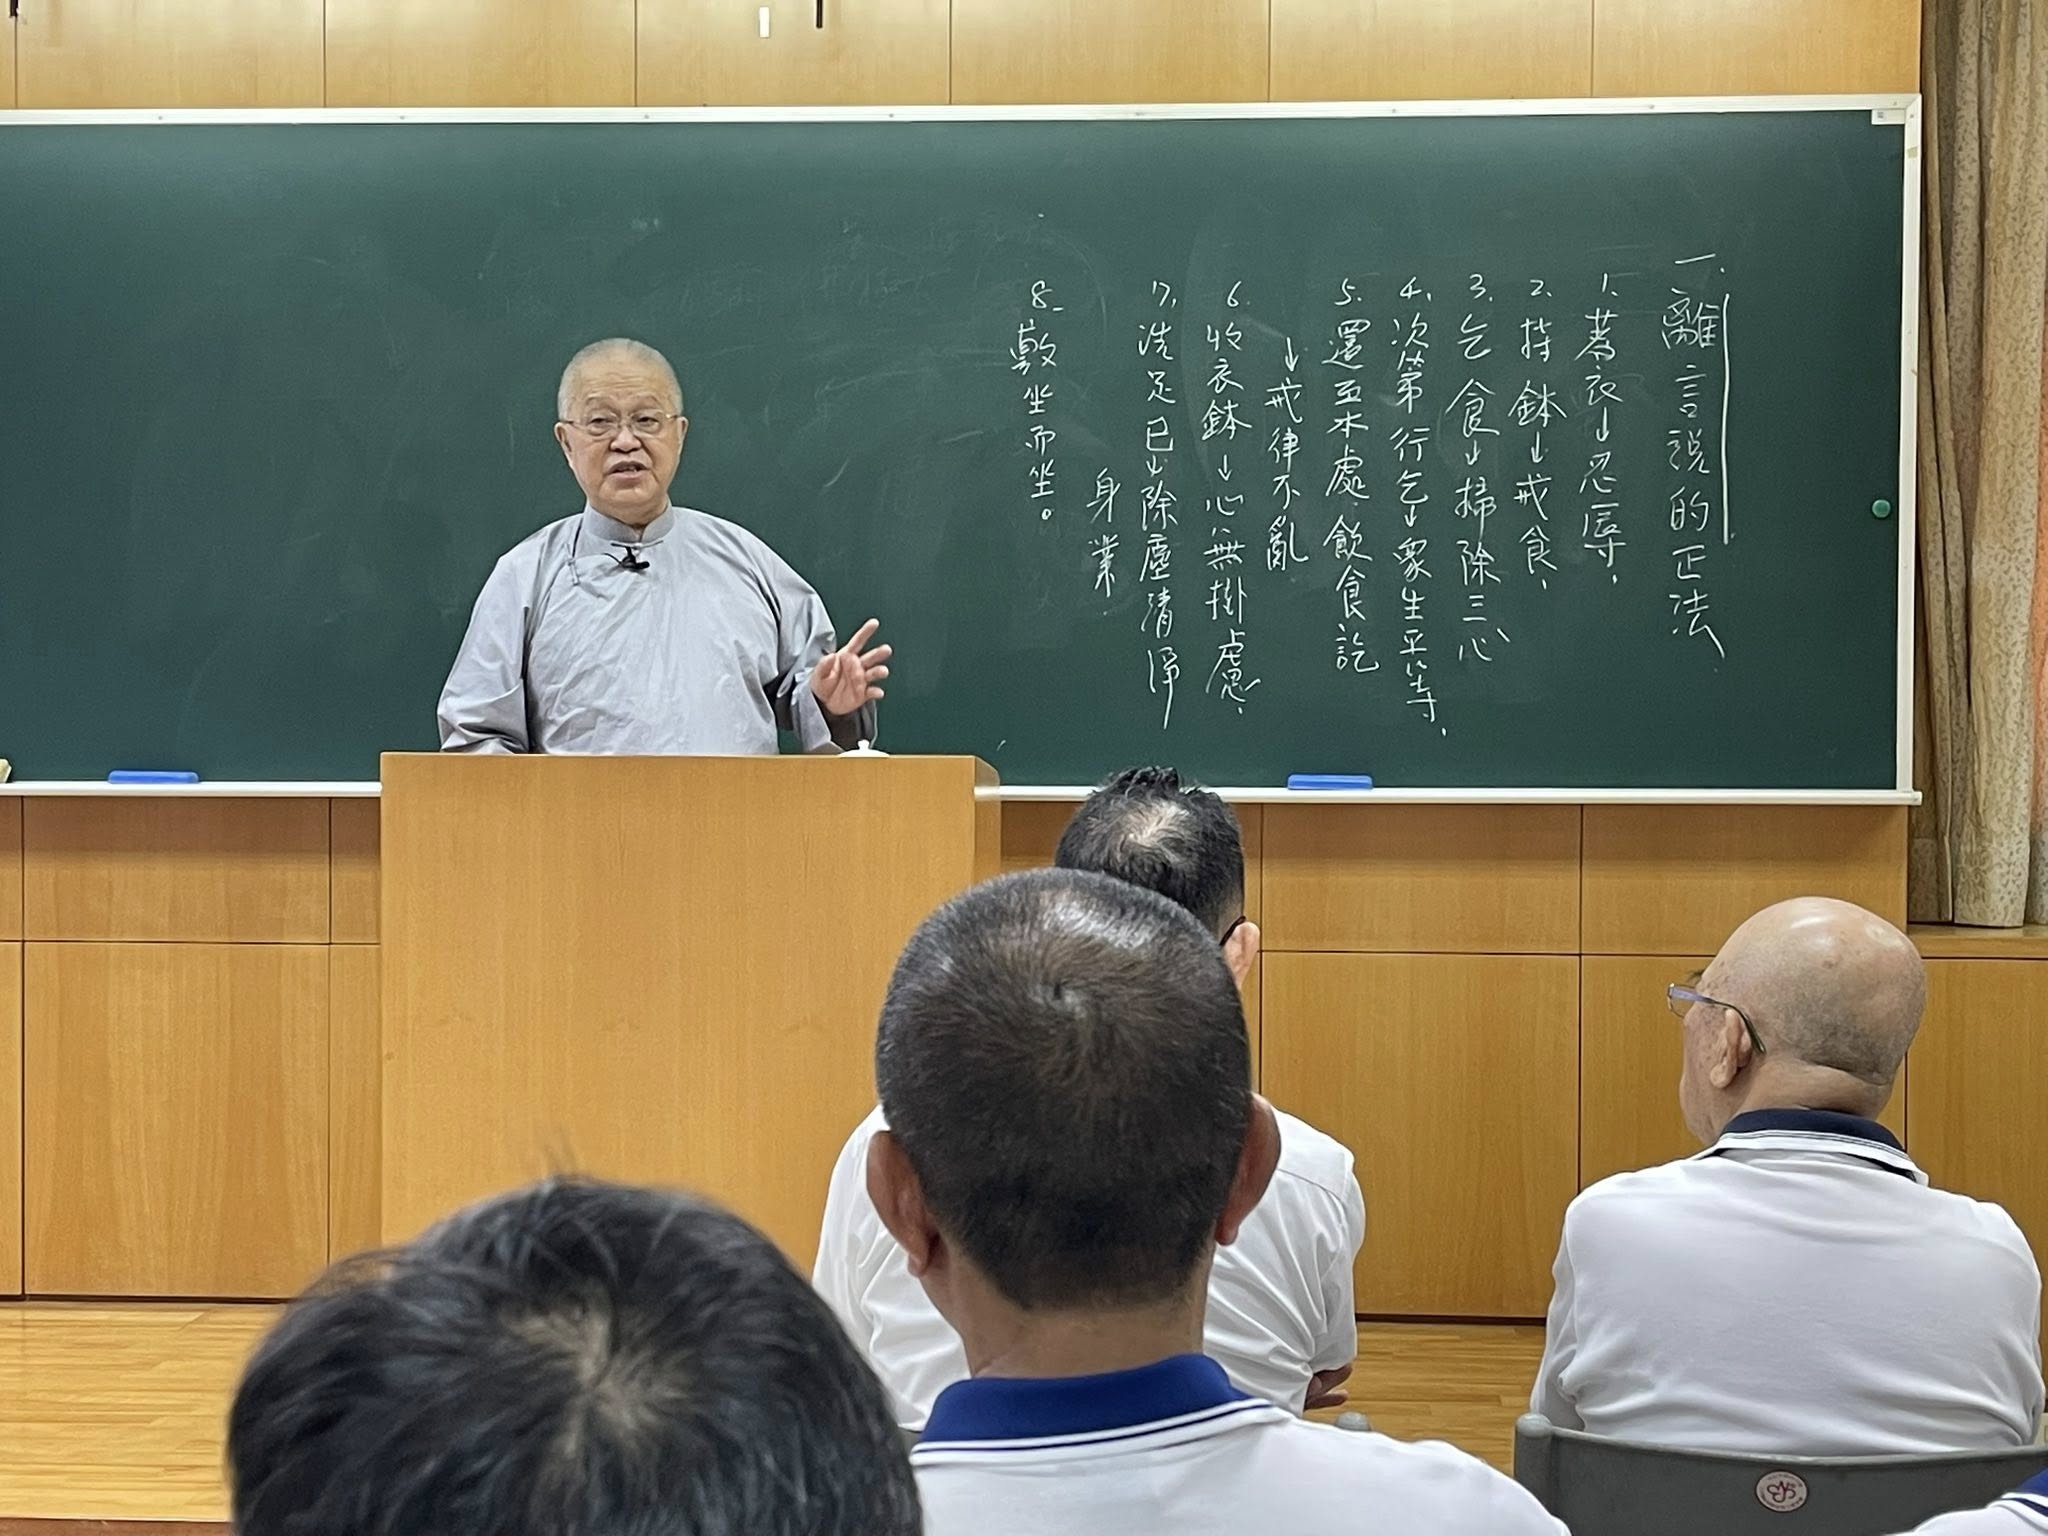 一、離言說的正法
1. 著衣→忍辱、
2. 持鉢→戒食、
3. 乞食→掃除三心
4. 次第行乞→眾生平等、
5. 還至本處、飲食訖
→戒律不亂
6. 收衣鉢→心無掛慮、
7. 洗足已→除塵清淨
身業、
8. 敷坐而坐。